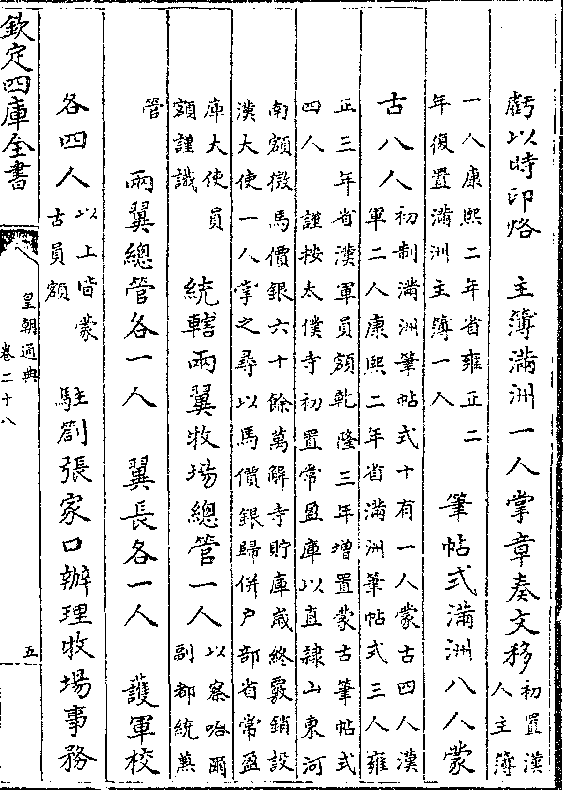 虧以時印烙　主簿滿洲一人掌章奏文移初置漢
人主簿
一人康熙二年省雍正二
年復置滿洲主簿一人　筆帖式滿洲八人蒙
古八人初制滿洲筆帖式十有一人蒙古四人漢
軍二人康熙二年省滿洲筆帖式三人雍
正三年省漢軍員額乾隆三年增置蒙古筆帖式
四人　謹按太僕寺初置常盈庫以直隸山東河
南額徵馬價銀六十餘萬解寺貯庫歲終覈銷設
漢大使一人掌之尋以馬價銀歸併戶部省常盈
庫大使員
額謹識　統轄兩翼牧場總管一人以察哈爾
副都統兼
管　兩翼總管各一人　翼長各一人　護軍校
各四人以上皆蒙
古員額　駐劄張家口辦理牧場事務
欽定四庫全書
皇朝通典
卷二十八
五